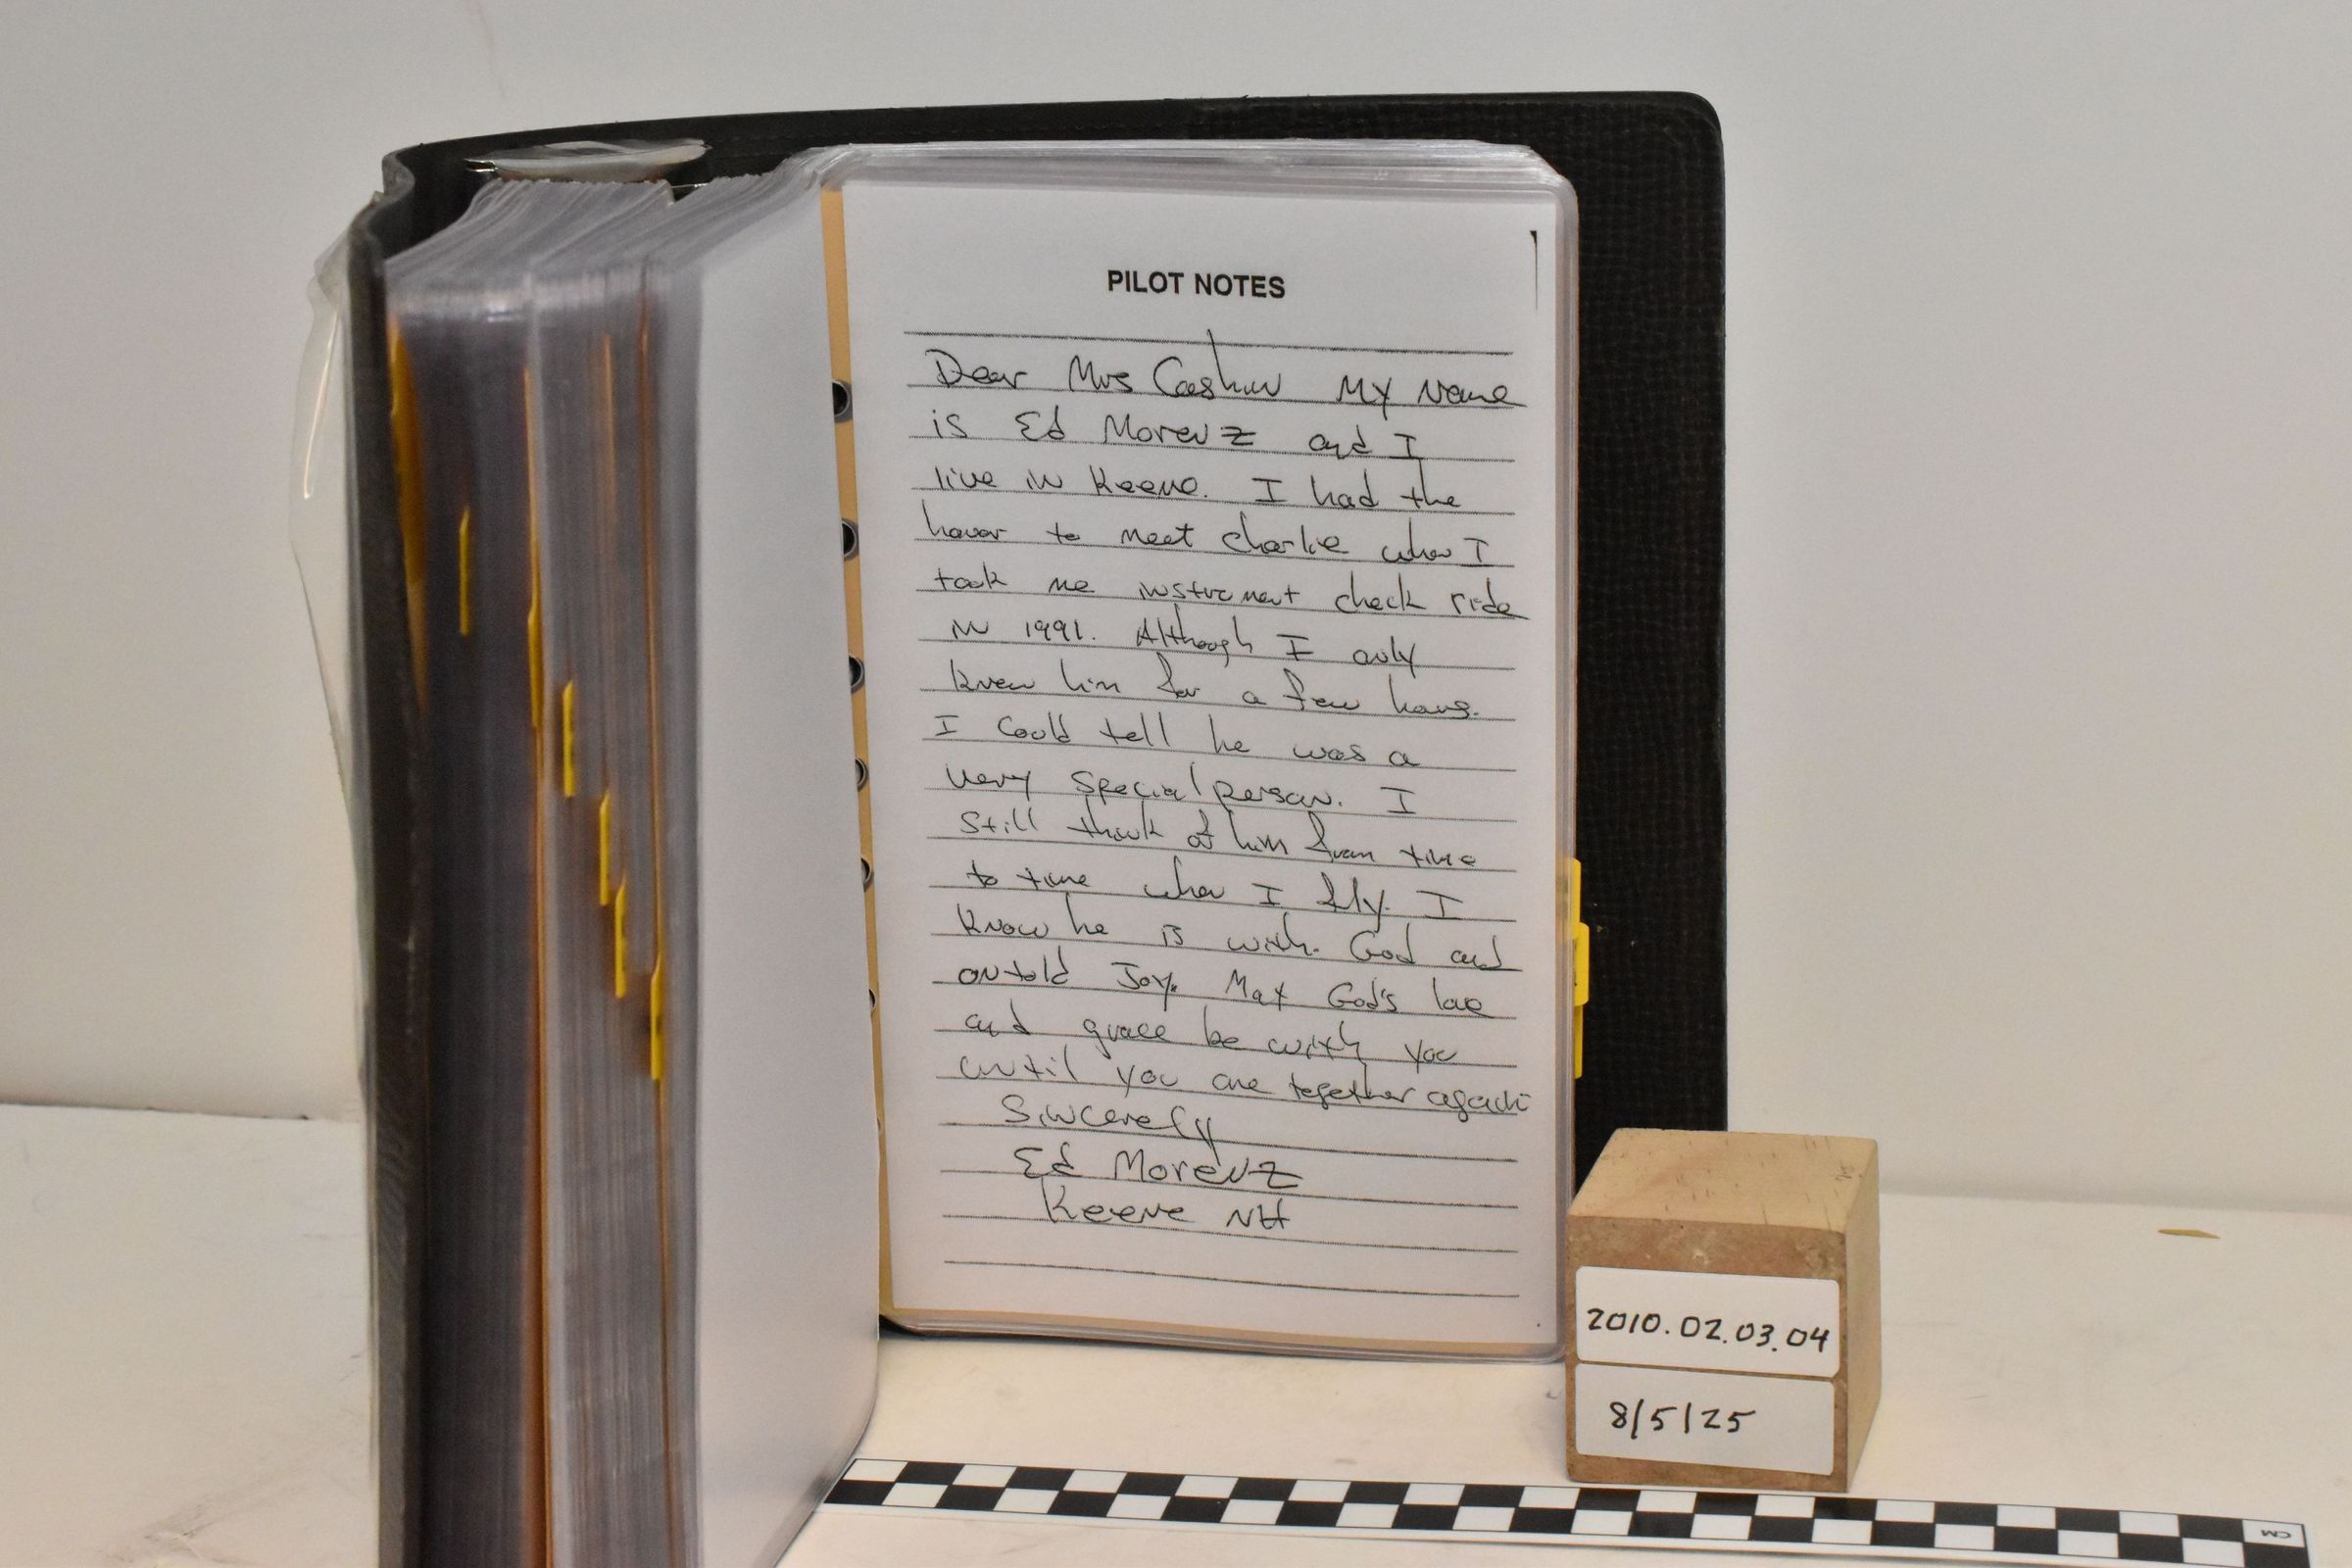 PILOT NOTES
Dear Mrs Cashin My Name
is Ed Morenz and I
live in Keene. I had the
honor to meet Charlie when I
took me instrument check ride
in 1991. Although I only
knew him for a few hours.
I could tell he was a
very special person. I
still think of him from time
to time when I fly. I
know he is with God and
untold Joy. May God's love
and grace be with you
until you are together again
Sincerely
Ed Morenz
Keene NH
2010.02.03.04
8/5/25
CM